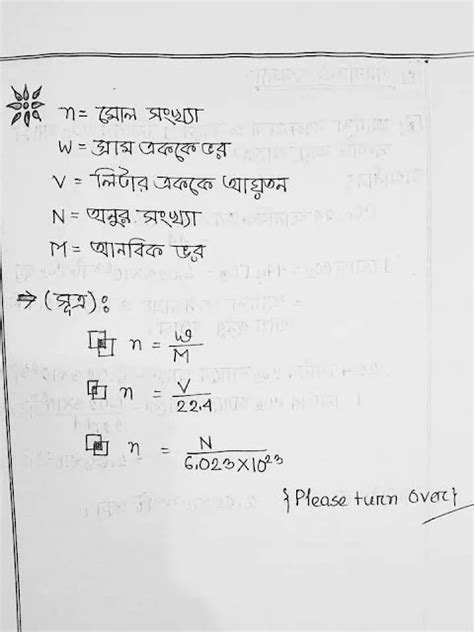 n = মোল সংখ্যা
W = গ্রাম এককে ভর
V = লিটার এককে আয়তন
N = অনুর সংখ্যা
M = আনবিক ভর
⇒ (সূত্র) :
n = W/M
n = V/22.4
n = N/6.023×10²³
{Please turn over}